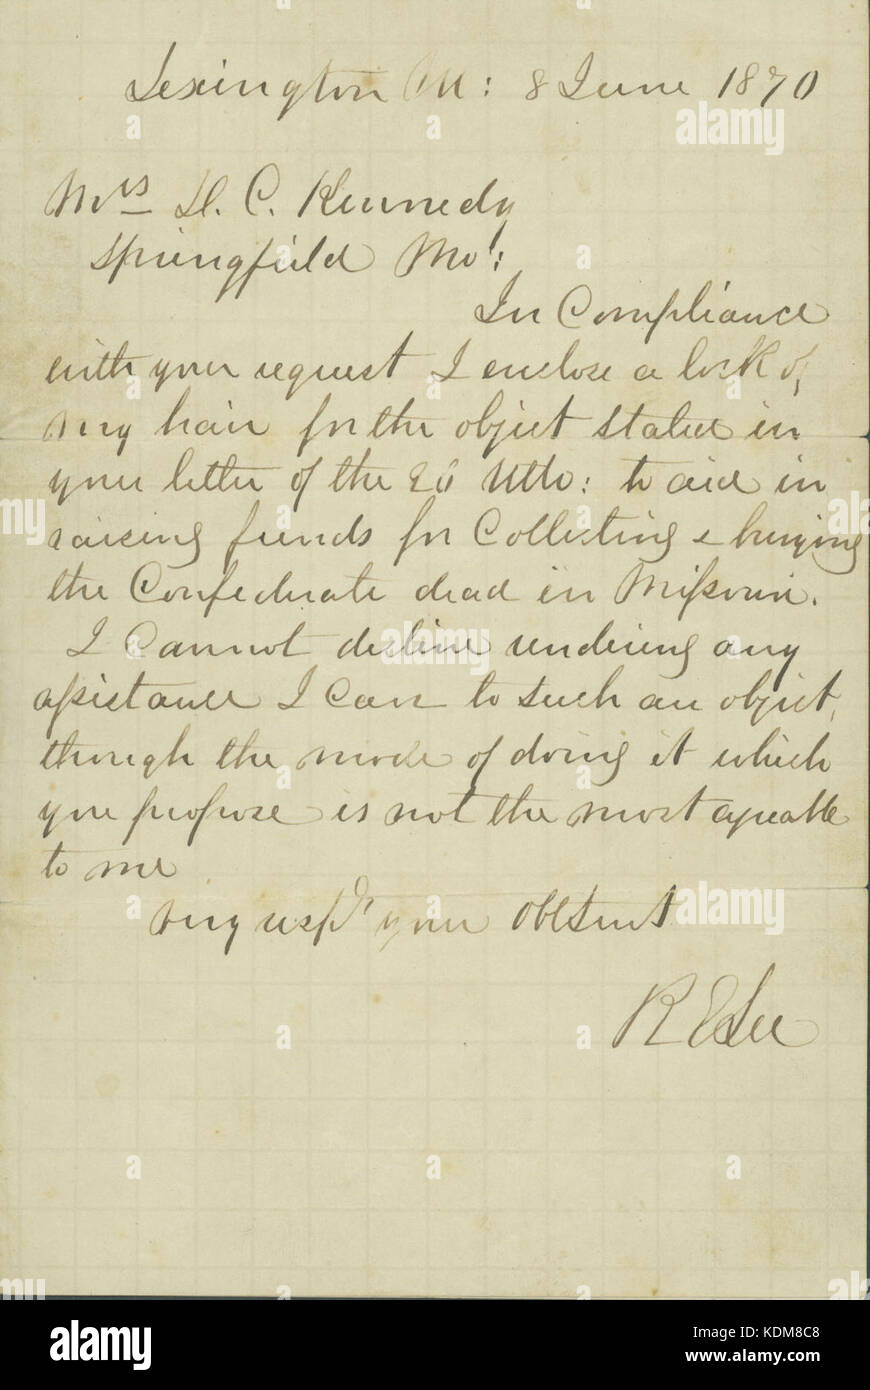 Lexington Va: 8 June 1870
Mrs D. C. Kennedy
Springfield Mo:
In Compliance
with your request I enclose a lock of
my hair for the object stated in
your letter of the 26 Ulto: to aid in
raising funds for Collecting & burying
the Confederate dead in Missouri.
I cannot decline rendering any
assistance I can to such an object,
though the mode of doing it which
you propose is not the most agreeable
to me
Very respy your obt Servt
R E Lee
alamy
a
alamy stock photo
KDM8C8
www.alamy.com